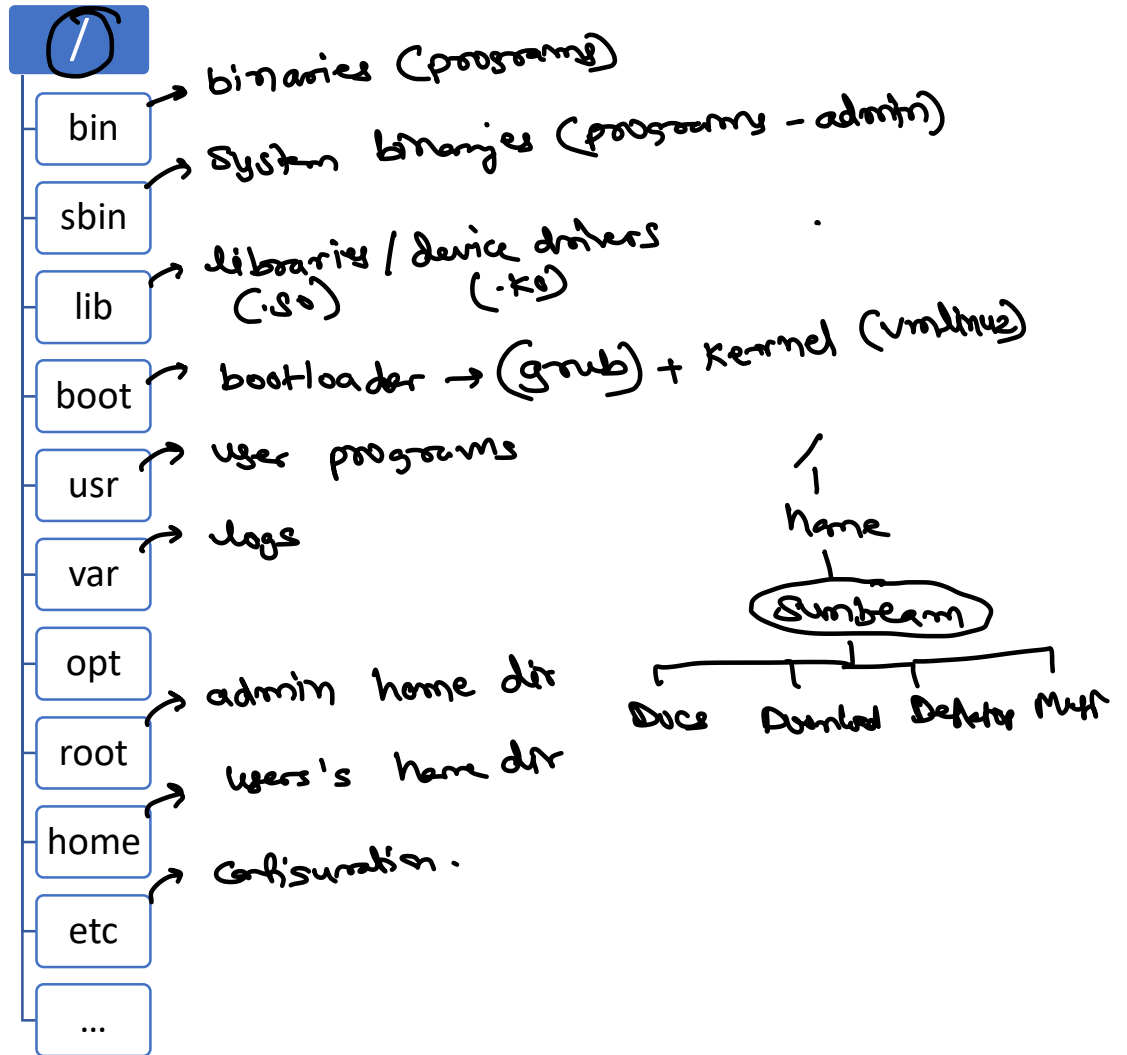 /
bin
binaries (programs)
sbin
system binaries (programs - admin)
lib
libraries / device drivers
(.so) (.ko)
boot
bootloader → (grub) + kernel (vmlinuz)
usr
user programs
var
logs
opt
root
admin home dir
home
users's home dir
etc
configuration.
...
/
home
sunbeam
Docs Download Desktop